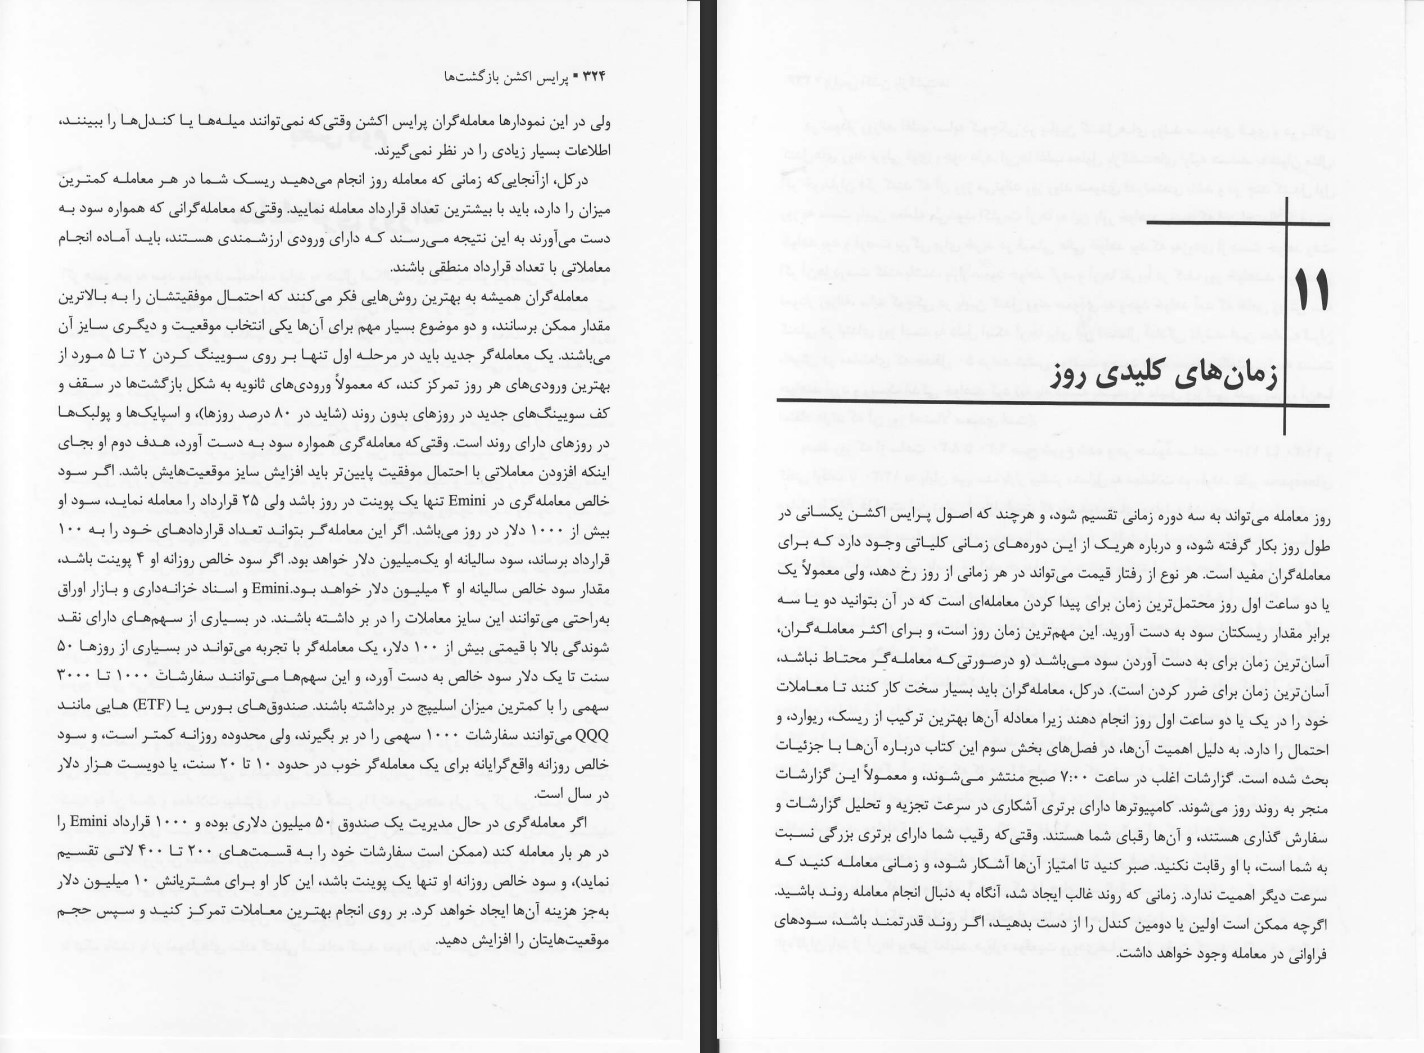 ۳۲۴ ▪ پرایس اکشن بازگشت‌ها
ولی در این نمودارها معامله‌گران پرایس اکشن وقتی‌که نمی‌توانند میله‌ها یا کندل‌ها را ببینند،
اطلاعات بسیار زیادی را در نظر نمی‌گیرند.
درکل، ازآنجایی‌که زمانی که معامله روز انجام می‌دهید ریسک شما در هر معامله کمترین
میزان را دارد، باید با بیشترین تعداد قرارداد معامله نمایید. وقتی‌که معامله‌گرانی که همواره سود به
دست می‌آورند به این نتیجه می‌رسند که دارای ورودی ارزشمندی هستند، باید آماده انجام
معاملاتی با تعداد قرارداد منطقی باشند.
معامله‌گران همیشه به بهترین روش‌هایی فکر می‌کنند که احتمال موفقیتشان را به بالاترین
مقدار ممکن برسانند، و دو موضوع بسیار مهم برای آن‌ها یکی انتخاب موقعیت و دیگری سایز آن
می‌باشند. یک معامله‌گر جدید باید در مرحله اول تنها بر روی سویینگ کردن ۲ تا ۵ مورد از
بهترین ورودی‌های هر روز تمرکز کند، که معمولاً ورودی‌های ثانویه به شکل بازگشت‌ها در سقف و
کف سویینگ‌های جدید در روزهای بدون روند (شاید در ۸۰ درصد روزها)، و اسپایک‌ها و پولبک‌ها
در روزهای دارای روند است. وقتی‌که معامله‌گری همواره سود به دست آورد، هدف دوم او بجای
اینکه افزودن معاملاتی با احتمال موفقیت پایین‌تر باید افزایش سایز موقعیت‌هایش باشد. اگر سود
خالص معامله‌گری در Emini تنها یک پوینت در روز باشد ولی ۲۵ قرارداد را معامله نماید، سود او
بیش از ۱۰۰۰ دلار در روز می‌باشد. اگر این معامله‌گر بتواند تعداد قراردادهای خود را به ۱۰۰
قرارداد برساند، سود سالیانه او یک‌میلیون دلار خواهد بود. اگر سود خالص روزانه او ۴ پوینت باشد،
مقدار سود خالص سالیانه او ۴ میلیون دلار خواهد بود.Emini و اسناد خزانه‌داری و بازار اوراق
به‌راحتی می‌توانند این سایز معاملات را در بر داشته باشند. در بسیاری از سهم‌های دارای نقد
شوندگی بالا با قیمتی بیش از ۱۰۰ دلار، یک معامله‌گر با تجربه می‌تواند در بسیاری از روزها ۵۰
سنت تا یک دلار سود خالص به دست آورد، و این سهم‌ها می‌توانند سفارشات ۱۰۰۰ تا ۳۰۰۰
سهمی را با کمترین میزان اسلیپیج در برداشته باشند. صندوق‌های بورس یا (ETF) هایی مانند
QQQ می‌توانند سفارشات ۱۰۰۰ سهمی را در بر بگیرند، ولی محدوده روزانه کمتر است، و سود
خالص روزانه واقع‌گرایانه برای یک معامله‌گر خوب در حدود ۱۰ تا ۲۰ سنت، یا دویست هزار دلار
در سال است.
اگر معامله‌گری در حال مدیریت یک صندوق ۵۰ میلیون دلاری بوده و ۱۰۰۰ قرارداد Emini را
در هر بار معامله کند (ممکن است سفارشات خود را به قسمت‌های ۲۰۰ تا ۴۰۰ لاتی تقسیم
نماید)، و سود خالص روزانه او تنها یک پوینت باشد، این کار او برای مشتریانش ۱۰ میلیون دلار
به‌جز هزینه آن‌ها ایجاد خواهد کرد. بر روی انجام بهترین معاملات تمرکز کنید و سپس حجم
موقعیت‌هایتان را افزایش دهید.
۱۱
زمان‌های کلیدی روز
روز معامله می‌تواند به سه دوره زمانی تقسیم شود، و هرچند که اصول پرایس اکشن یکسانی در
طول روز بکار گرفته شود، و درباره هریک از این دوره‌های زمانی کلیاتی وجود دارد که برای
معامله‌گران مفید است. هر نوع از رفتار قیمت می‌تواند در هر زمانی از روز رخ دهد، ولی معمولاً یک
یا دو ساعت اول روز محتمل‌ترین زمان برای پیدا کردن معامله‌ای است که در آن بتوانید دو یا سه
برابر مقدار ریسکتان سود به دست آورید. این مهم‌ترین زمان روز است، و برای اکثر معامله‌گران،
آسان‌ترین زمان برای به دست آوردن سود می‌باشد (و درصورتی‌که معامله‌گر محتاط نباشد،
آسان‌ترین زمان برای ضرر کردن است). درکل، معامله‌گران باید بسیار سخت کار کنند تا معاملات
خود را در یک یا دو ساعت اول روز انجام دهند زیرا معادله آن‌ها بهترین ترکیب از ریسک، ریوارد، و
احتمال را دارد. به دلیل اهمیت آن‌ها، در فصل‌های بخش سوم این کتاب درباره آن‌ها با جزئیات
بحث شده است. گزارشات اغلب در ساعت ۷:۰۰ صبح منتشر می‌شوند، و معمولاً این گزارشات
منجر به روند روز می‌شوند. کامپیوترها دارای برتری آشکاری در سرعت تجزیه و تحلیل گزارشات و
سفارش گذاری هستند، و آن‌ها رقبای شما هستند. وقتی‌که رقیب شما دارای برتری بزرگی نسبت
به شما است، با او رقابت نکنید. صبر کنید تا امتیاز آن‌ها آشکار شود، و زمانی معامله کنید که
سرعت دیگر اهمیت ندارد. زمانی که روند غالب ایجاد شد، آنگاه به دنبال انجام معامله روند باشید.
اگرچه ممکن است اولین یا دومین کندل را از دست بدهید، اگر روند قدرتمند باشد، سودهای
فراوانی در معامله وجود خواهد داشت.